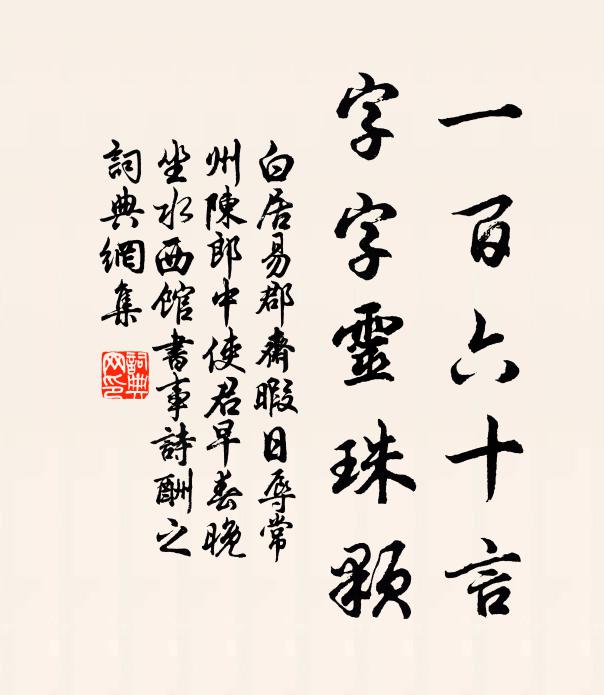 一百六十言
字字靈珠顆
白居易郡齋暇日辱常
州陳郎中使君早春晚
坐水西館書事詩酬之
詞典網集
詞典
网印